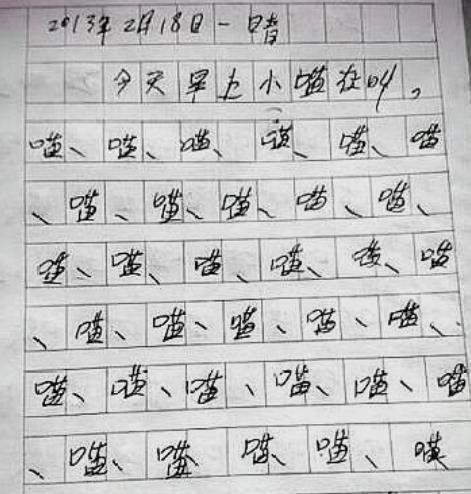 2013年2月18日 一 晴
今天早上小喵在叫，
喵、喵、喵、喵、喵、喵
、喵、喵、喵、喵、喵、
喵、喵、喵、喵、喵、喵
、喵、喵、喵、喵、喵、
喵、喵、喵、喵、喵、喵
、喵、喵、喵、喵、喵